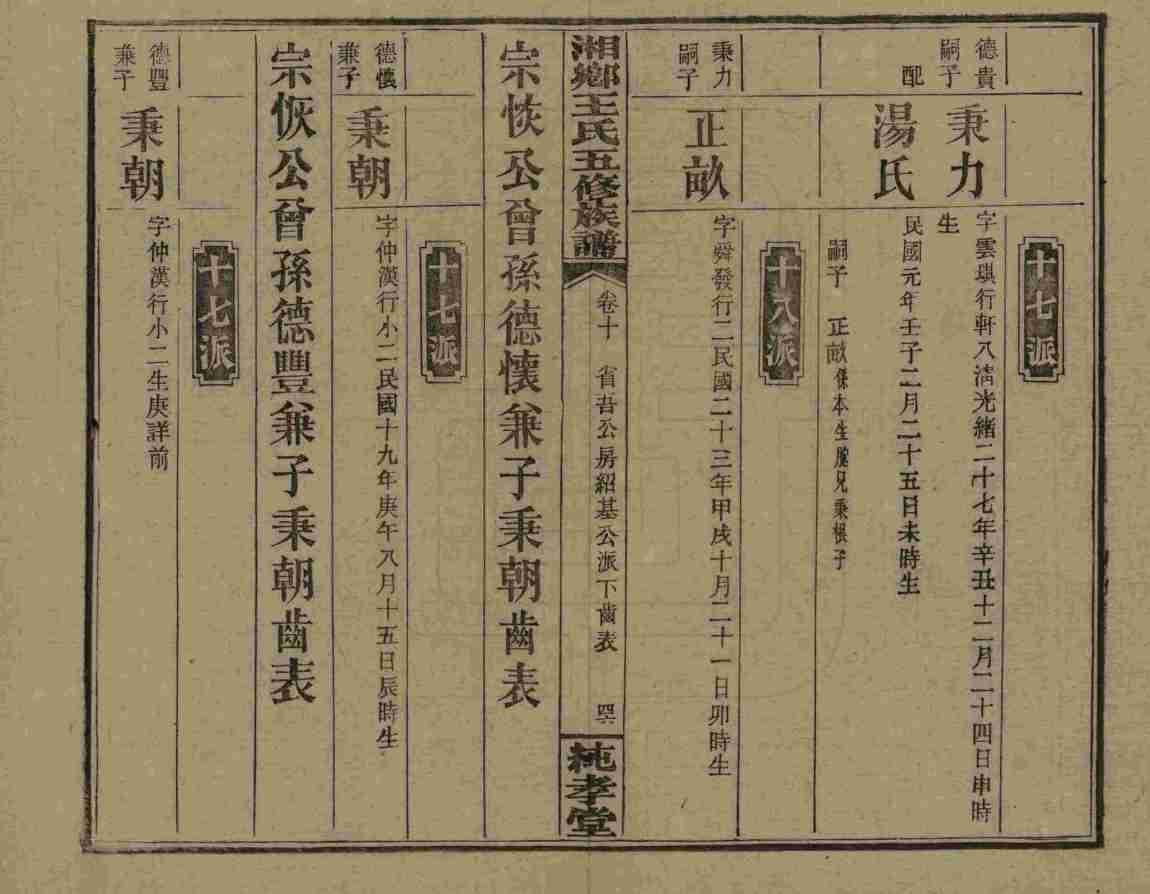 十七派
德貴
嗣子
秉力
字雲琪行軒八淸光緒二十七年辛丑十二月二十四日申時
生
配
湯氏
民國元年壬子二月二十五日未時生
嗣子 正畝係本生胞兄秉根子
十八派
秉力
嗣子
正畝
字舜發行二民國二十三年甲戌十月二十一日卯時生
湘鄉王氏五修族譜
卷十 省吾公房紹基公派下齒表
純孝堂
宗恢公曾孫德懷兼子秉朝齒表
十七派
德懷
兼子
秉朝
字仲漢行小二民國十九年庚午八月十五日辰時生
宗恢公曾孫德豐兼子秉朝齒表
十七派
德豐
兼子
秉朝
字仲漢行小二生庚詳前